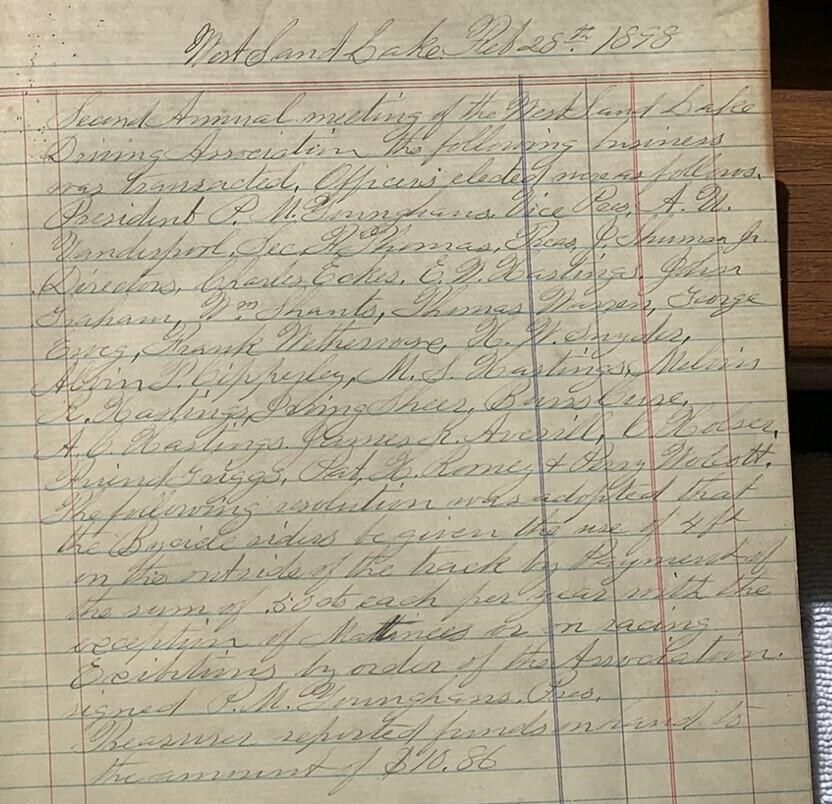 West Sand Lake Feb 28th 1898
Second Annual meeting of the West Sand Lake
Driving Association the following business
was transacted. Officers elected were as follows.
President P. M. Younghans. Vice Pres, A. N.
Vanderpool, Sec F. Thomas, Treas, J. Shuman Jr.
Directors, Charles Eckes. E. W. Hastings. John
Graham, Wm Shants, Thomas Warren, George
Eweg, Frank Wetherwax, H. W. Snyder,
Alvin P. Cipperley, M. S. Hastings, Melvin
R. Hastings, Irving Sheer, Barns
A. C. Hastings. James K. Averill, C. Holser,
Friend Griggs, Pat, H. Romey & Perry Wolcott.
The following resolution was adopted that
the Bycicle riders be given the use of 4 ft
on the outside of the track by Payment of
the sum of .50cts each per year with the
exception of Mattinees or on racing
Exibitions by order of the Association.
signed P. M. Younghans. Pres,
Treasurer reported funds on hand to
the amount of $10.86